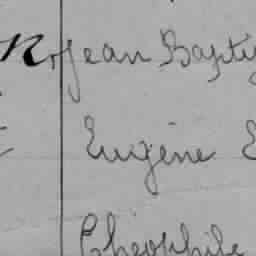 N. Jean Bapti
Eugène E
Théophile